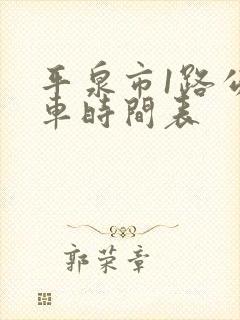 平泉市1路公
車時間表
郭荣章